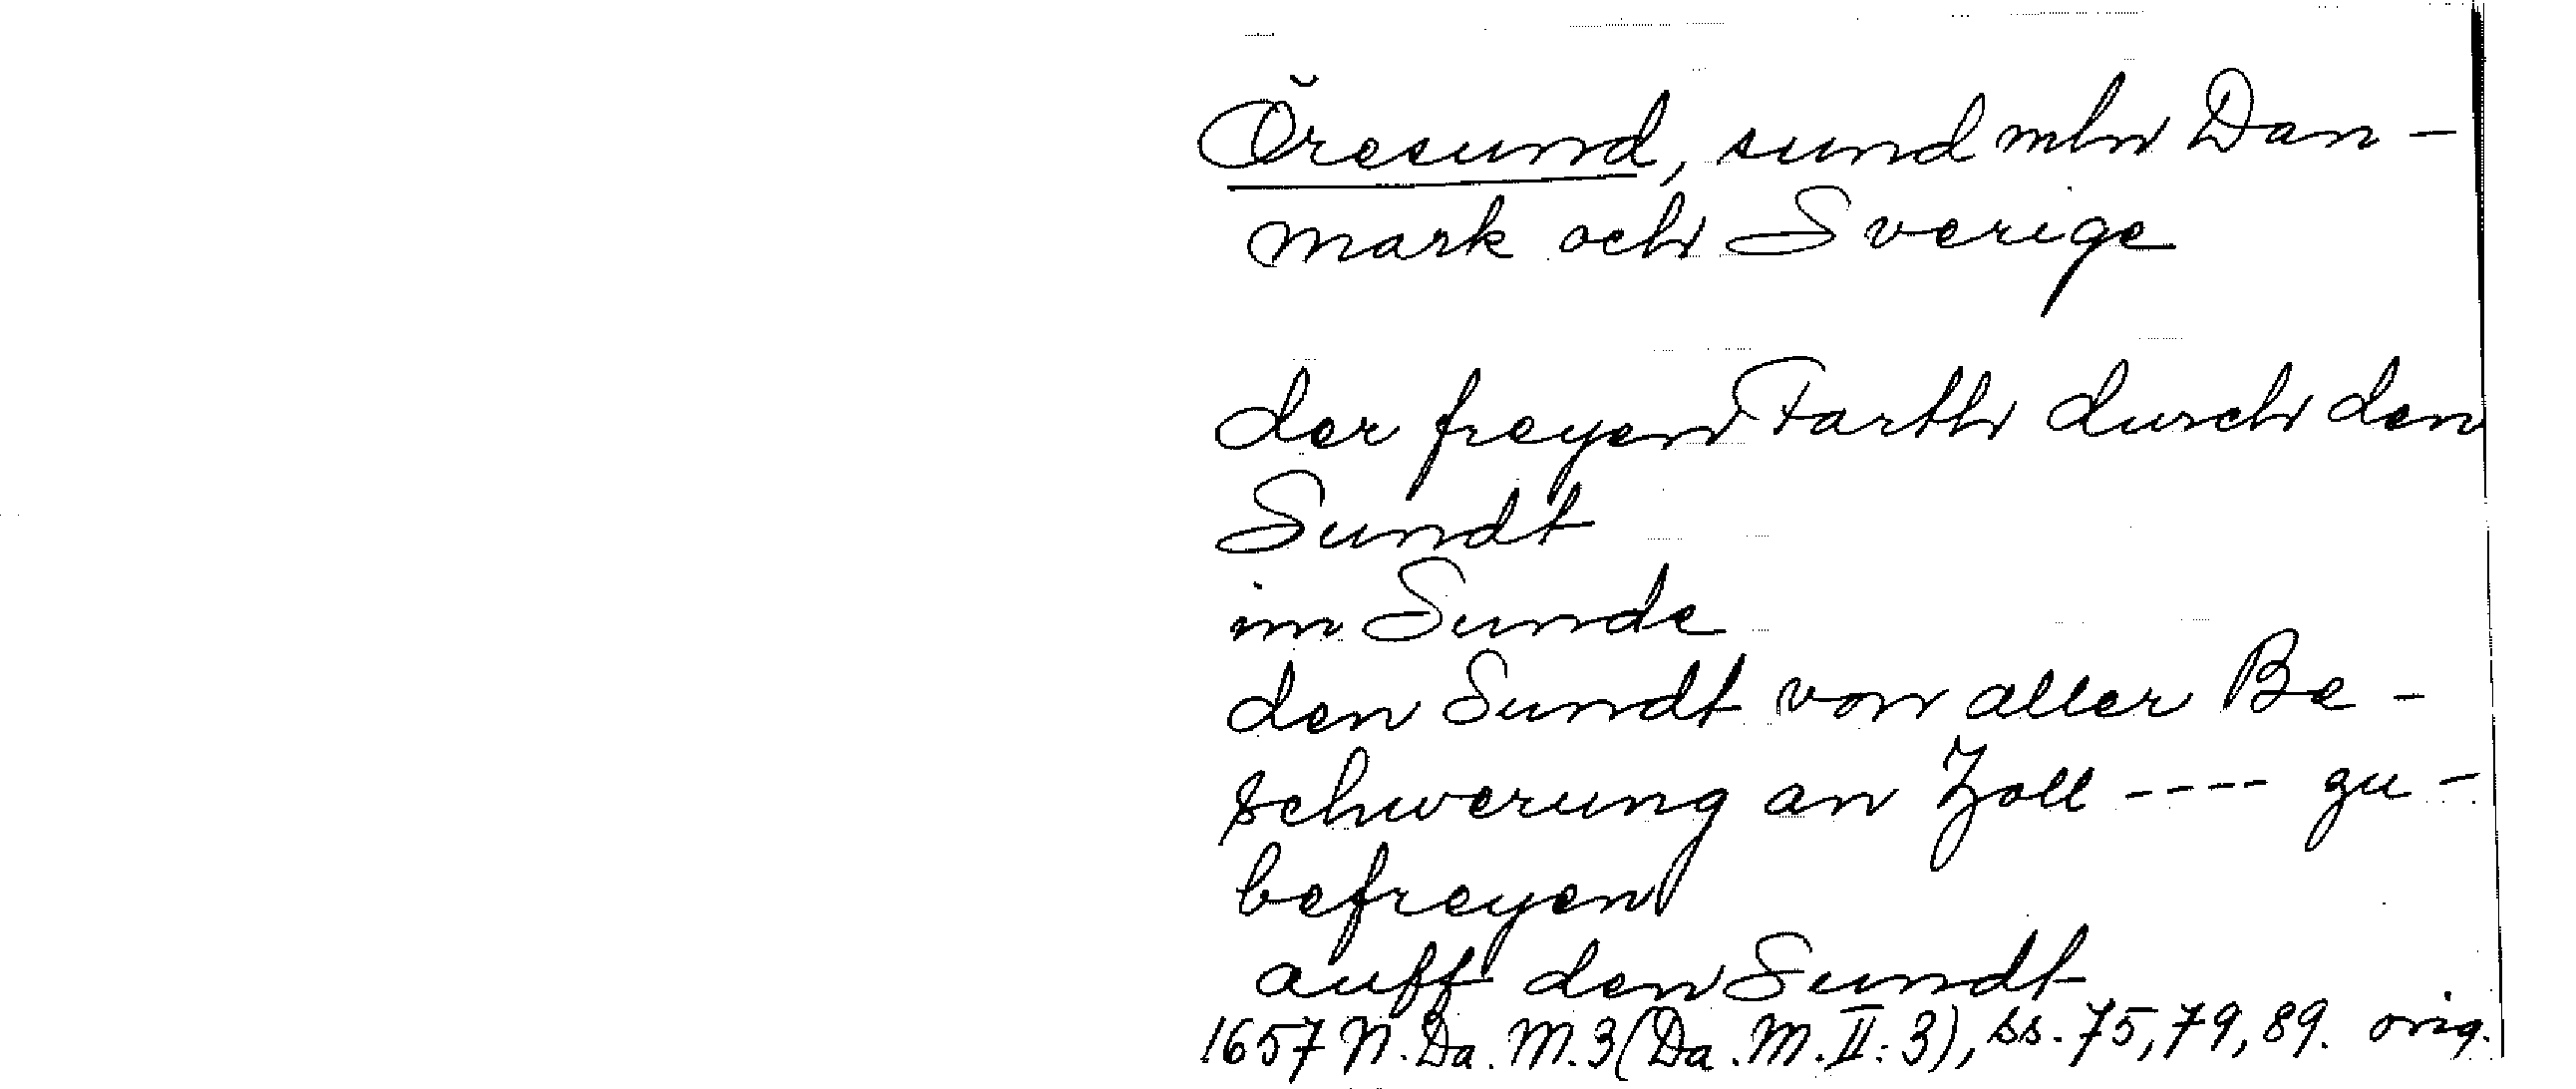 Öresund, sund mln Dan-
mark och Sverige
der freyen Farth durch den
Sundt
im Sunde
den Sundt von aller Be-
schwerung an Zoll ---- zu-
befreyen
auff den Sundt
1657 N. Da. M. 3 (Da. M. II: 3), ss. 75, 79, 89. orig.